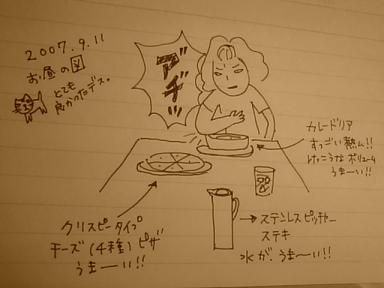 2007.9.11
お昼の図
とても
良かったデス。
アヂッ
カレードリア
すっごい熱ム!!
けっこうなボリューム
うまーい!!
クリスピータイプ
チーズ(4種)ピザ
うまーい!!
→ステンレスピッチャー
ステキ
水が、うま〜い!!